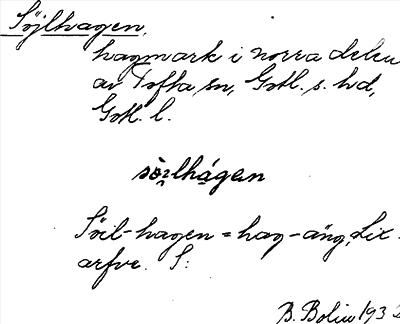 Söjlhagen,
hagmark i norra delen
av Tofta sn, Gotl. s. hd,
Gotl. l.
sòᴉlhágan
Söil-hagen = hag-äng, Lix-
arfve. S:
B. Bolin 193